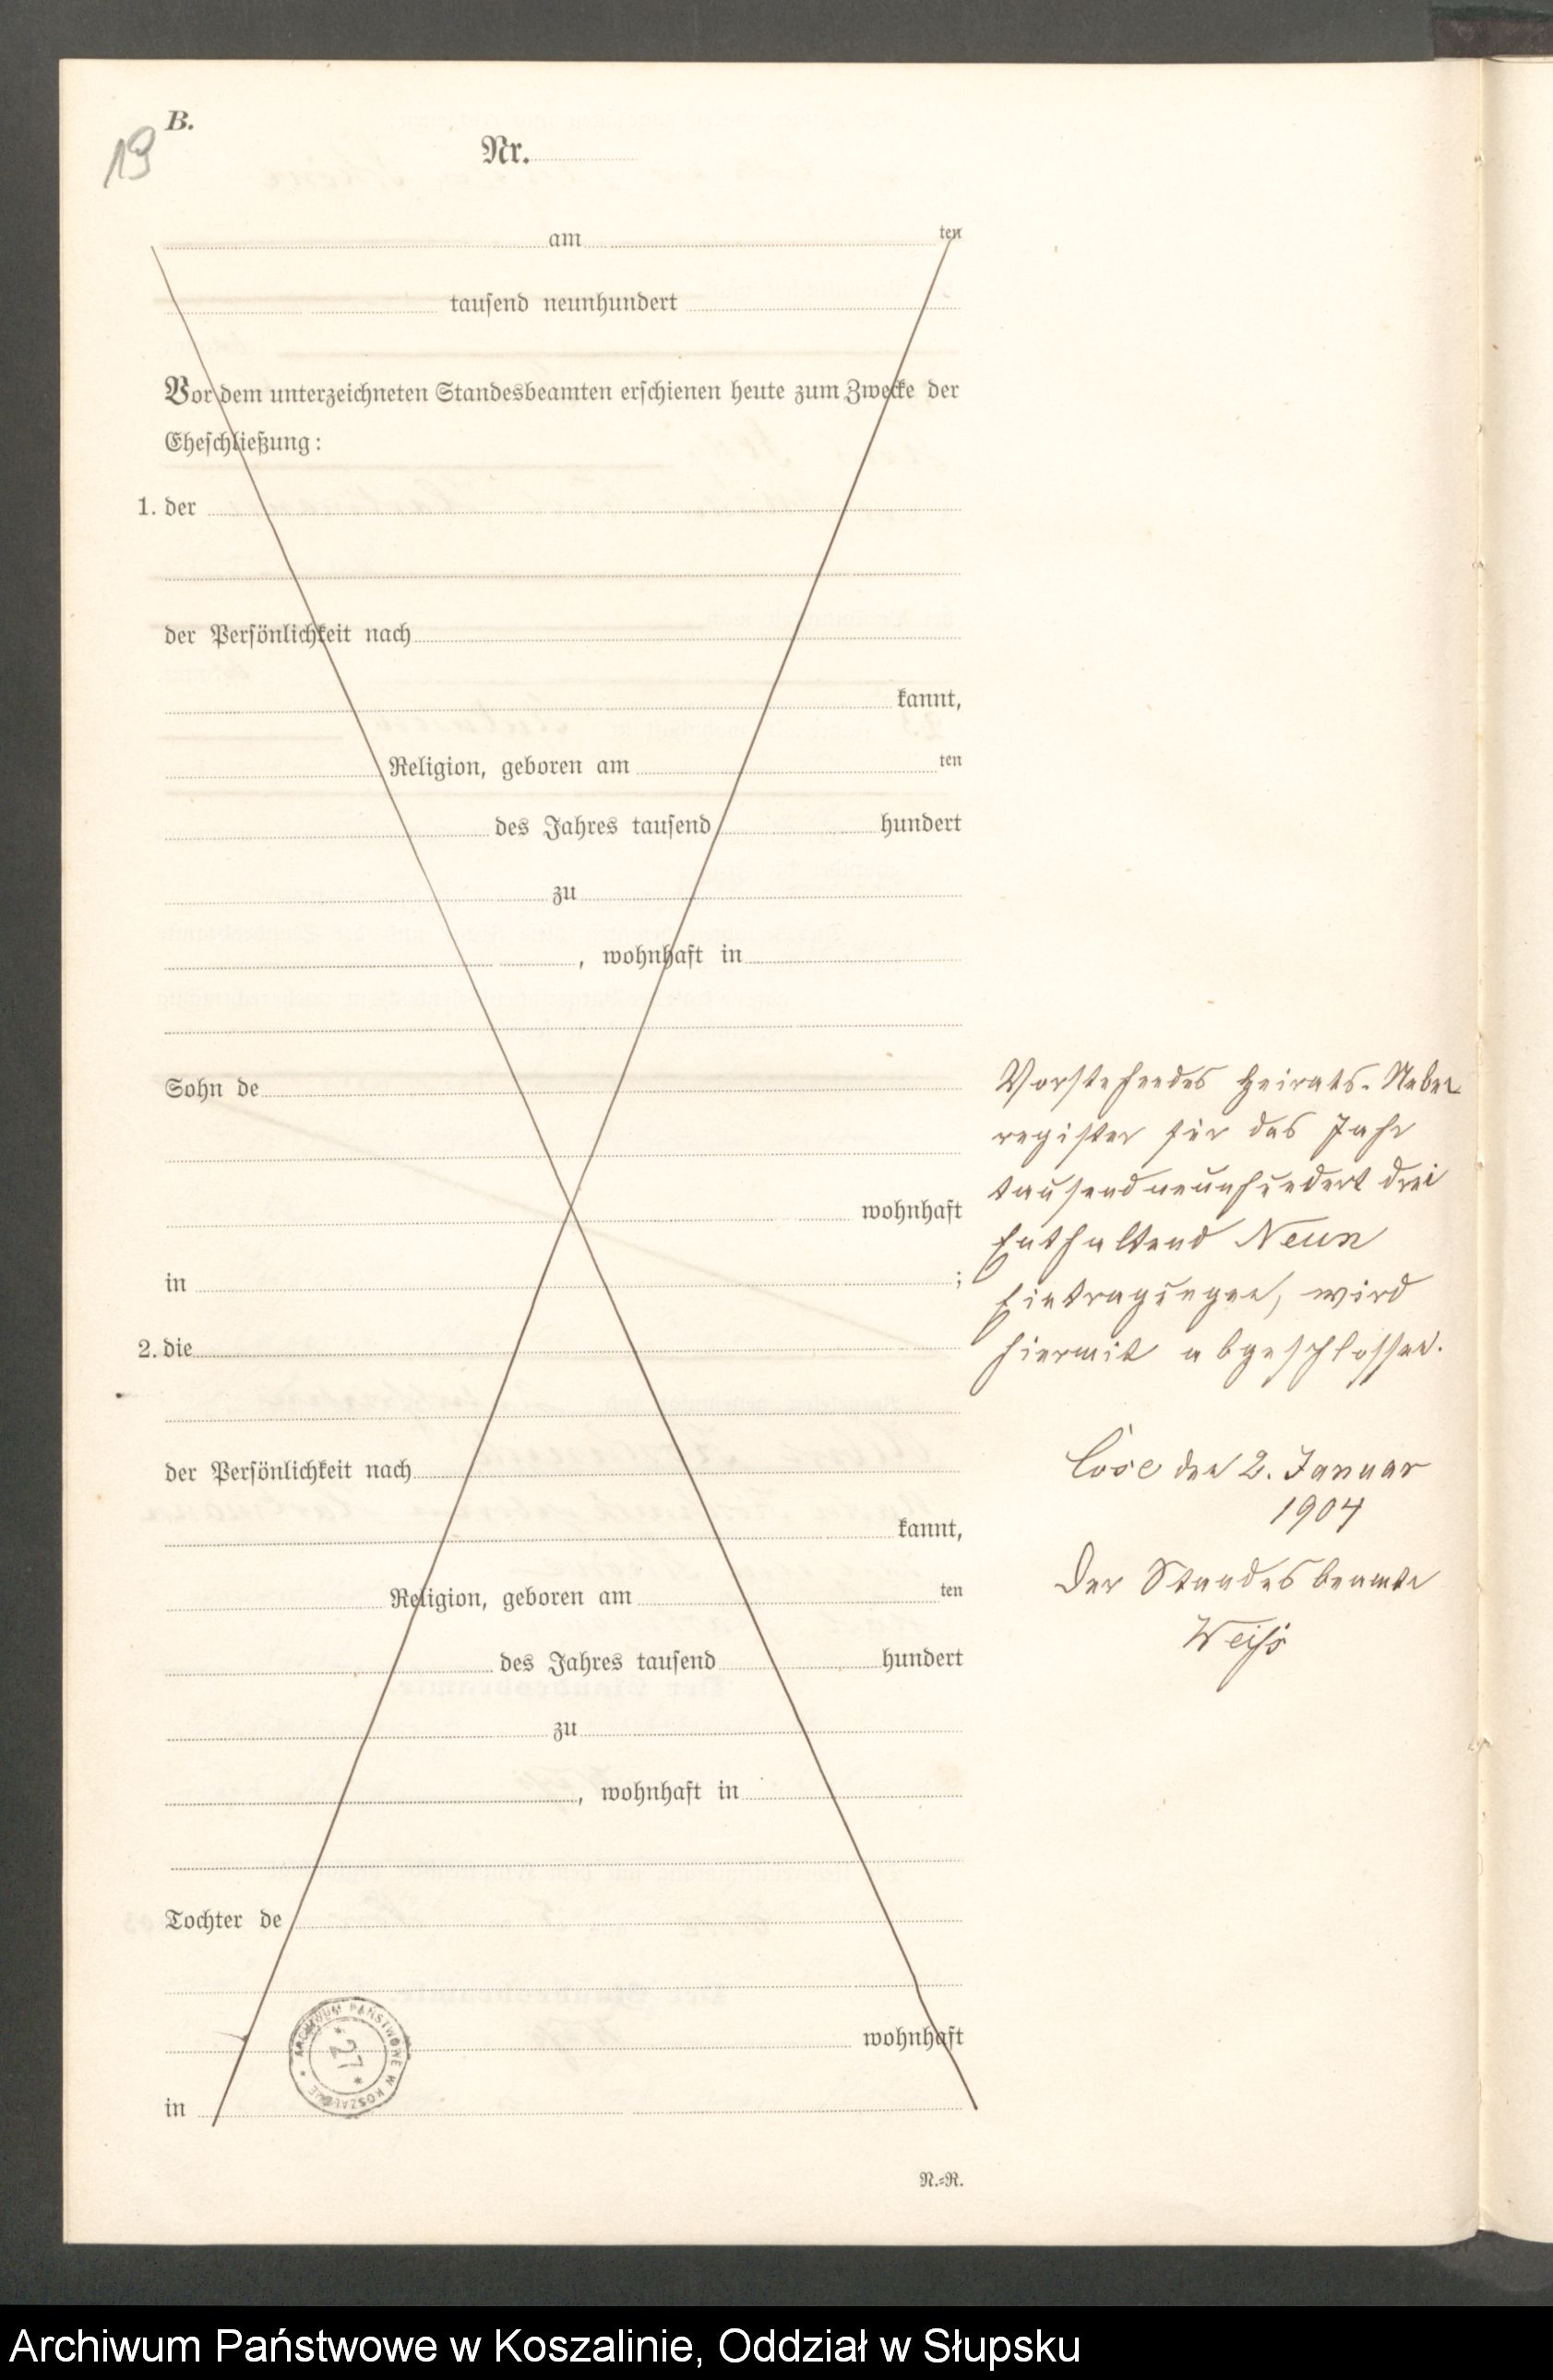 B.
19
Nr.
am ten
tausend neunhundert
Vor dem unterzeichneten Standesbeamten erschienen heute zum Zwecke der
Eheschließung:
1. der
der Persönlichkeit nach
kannt,
Religion, geboren am ten
des Jahres tausend hundert
zu
, wohnhaft in
Sohn de
wohnhaft
in ;
2. die
der Persönlichkeit nach
kannt,
Religion, geboren am ten
des Jahres tausend hundert
zu
, wohnhaft in
Tochter de
wohnhaft
in
N.=R.
Vorstehendes Heirats-Neben
register für das Jahr
tausendneunhundert drei
Enthaltend Neun
Eintragungen, wird
hiermit abgeschlossen.
Cöse den 2. Januar
1904
Der Standesbeamte
Weiß
ARCHIWUM PAŃSTWOWE W KOSZALINIE
27
Archiwum Państwowe w Koszalinie, Oddział w Słupsku